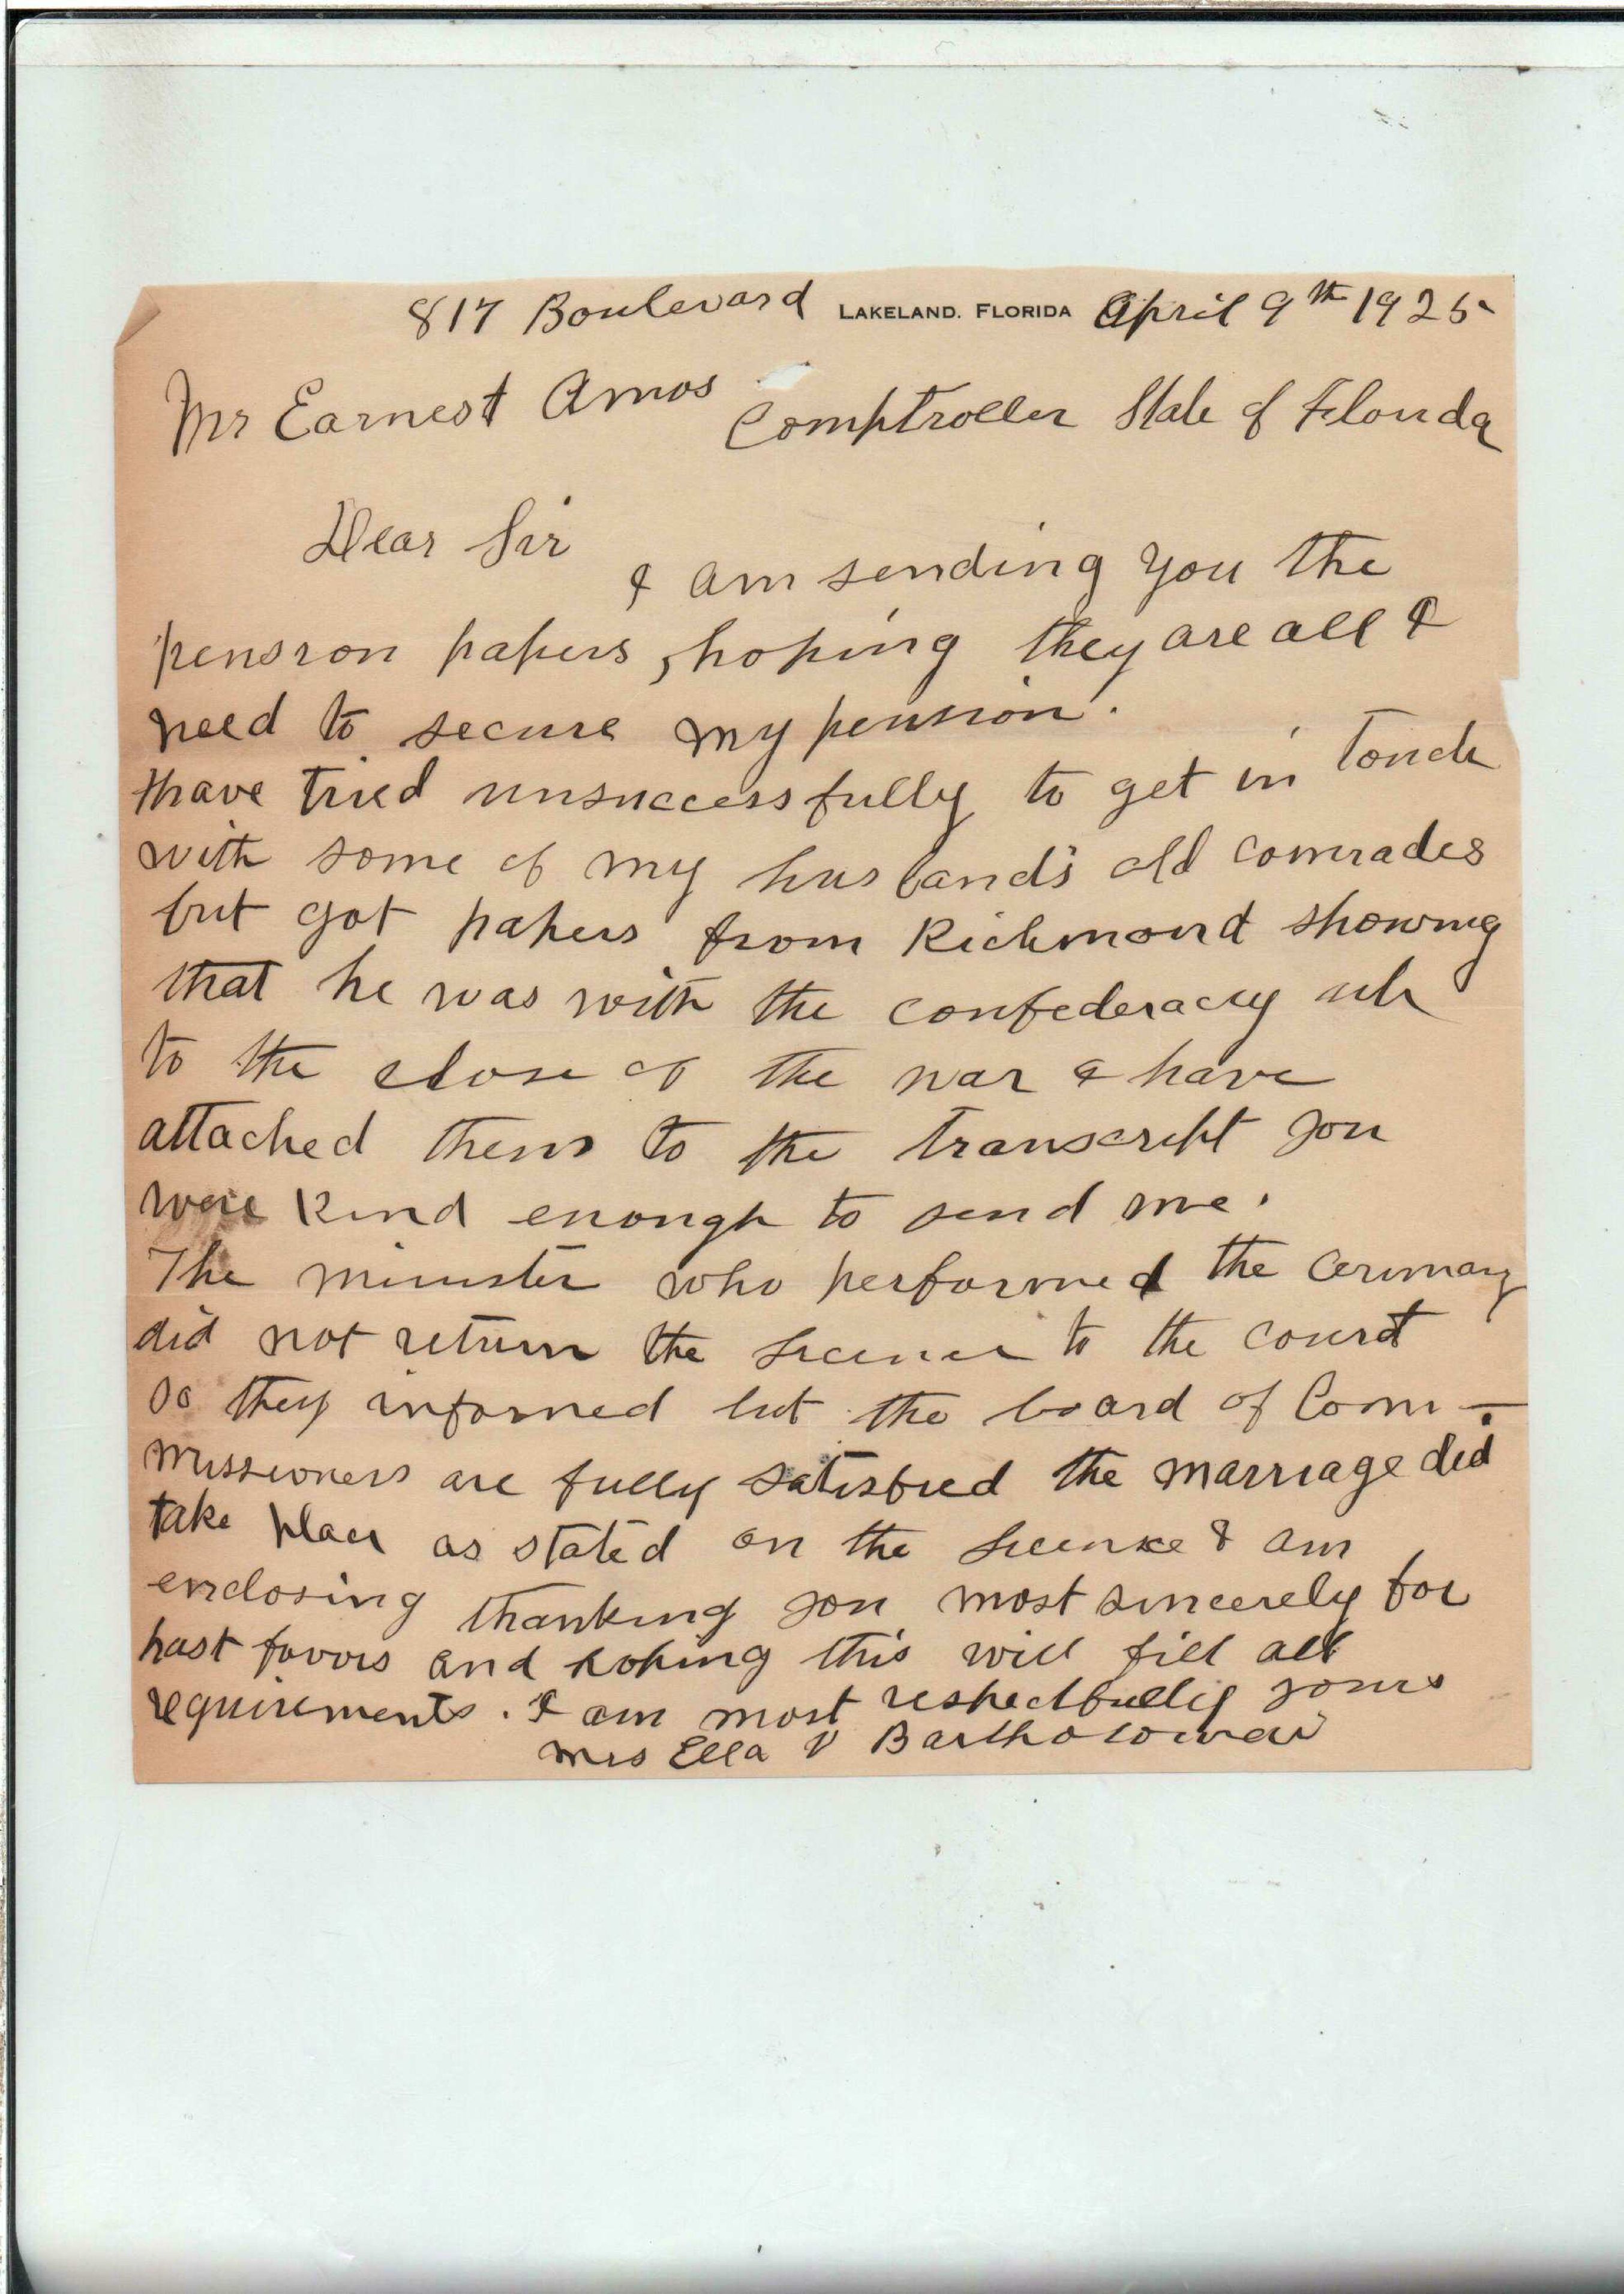 817 Boulevard LAKELAND, FLORIDA April 9th 1925
Mr Earnest Amos Comptroller State of Florida
Dear Sir
I am sending you the
pension papers, hoping they are all I
need to secure my pension.
I have tried unsuccessfully to get in Touch
with some of my husband's old comrades
but got papers from Richmond showing
that he was with the confederacy up
to the close of the war & have
attached them to the transcript you
were kind enough to send me.
The minister who performed the cerimony
did not return the license to the court
so they informed but the board of Com-
missioners are fully satisfied the marriage did
take place as stated on the license I am
enclosing thanking you most sincerely for
past favors and hoping this will fill all
requirements. I am most respectfully yours
Mrs Ella V Bartholomew